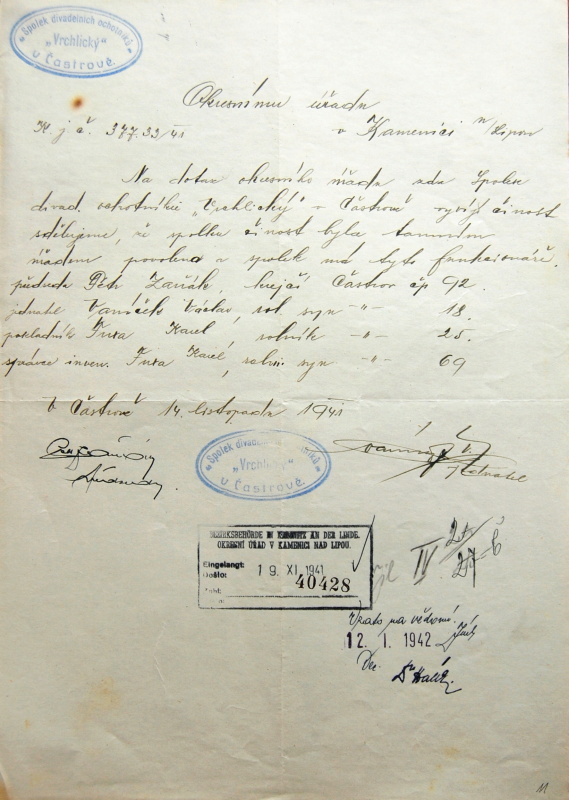 Spolek divadelních ochotníků
„Vrchlický"
v Častrově.
Okresnímu úřadu
K. j. č. 377.33/41 v Kamenici n/Lipou
Na dotaz okresního úřadu zda Spolek
divad. ochotníků „Vrchlický" v Častrově vyvíjí činost
sdělujeme, že spolku činost byla tamním
úřadem povolena a spolek má tyto funkcionáře.
předseda Petr krejčí Častrov čp 92.
jednatel Vaníček Václav, rol. syn -"- 18.
pokladník Fuxa Karel, rolník -"- 25.
správce inven. Fuxa Karel, rolni. syn -"- 69
V Častrově 14. listopadu 1941
Spolek divadelních ochotníků
„Vrchlický"
v Častrově.
Jednatel
BEZIRKSBEHÖRDE IN KAMNITZ AN DER LINDE.
OKRESNÍ ÚŘAD V KAMENICI NAD LIPOU.
Eingelangt: 19. XI. 1941
Došlo:
40428
IV
Vzato na vědomí.
12. I. 1942
11